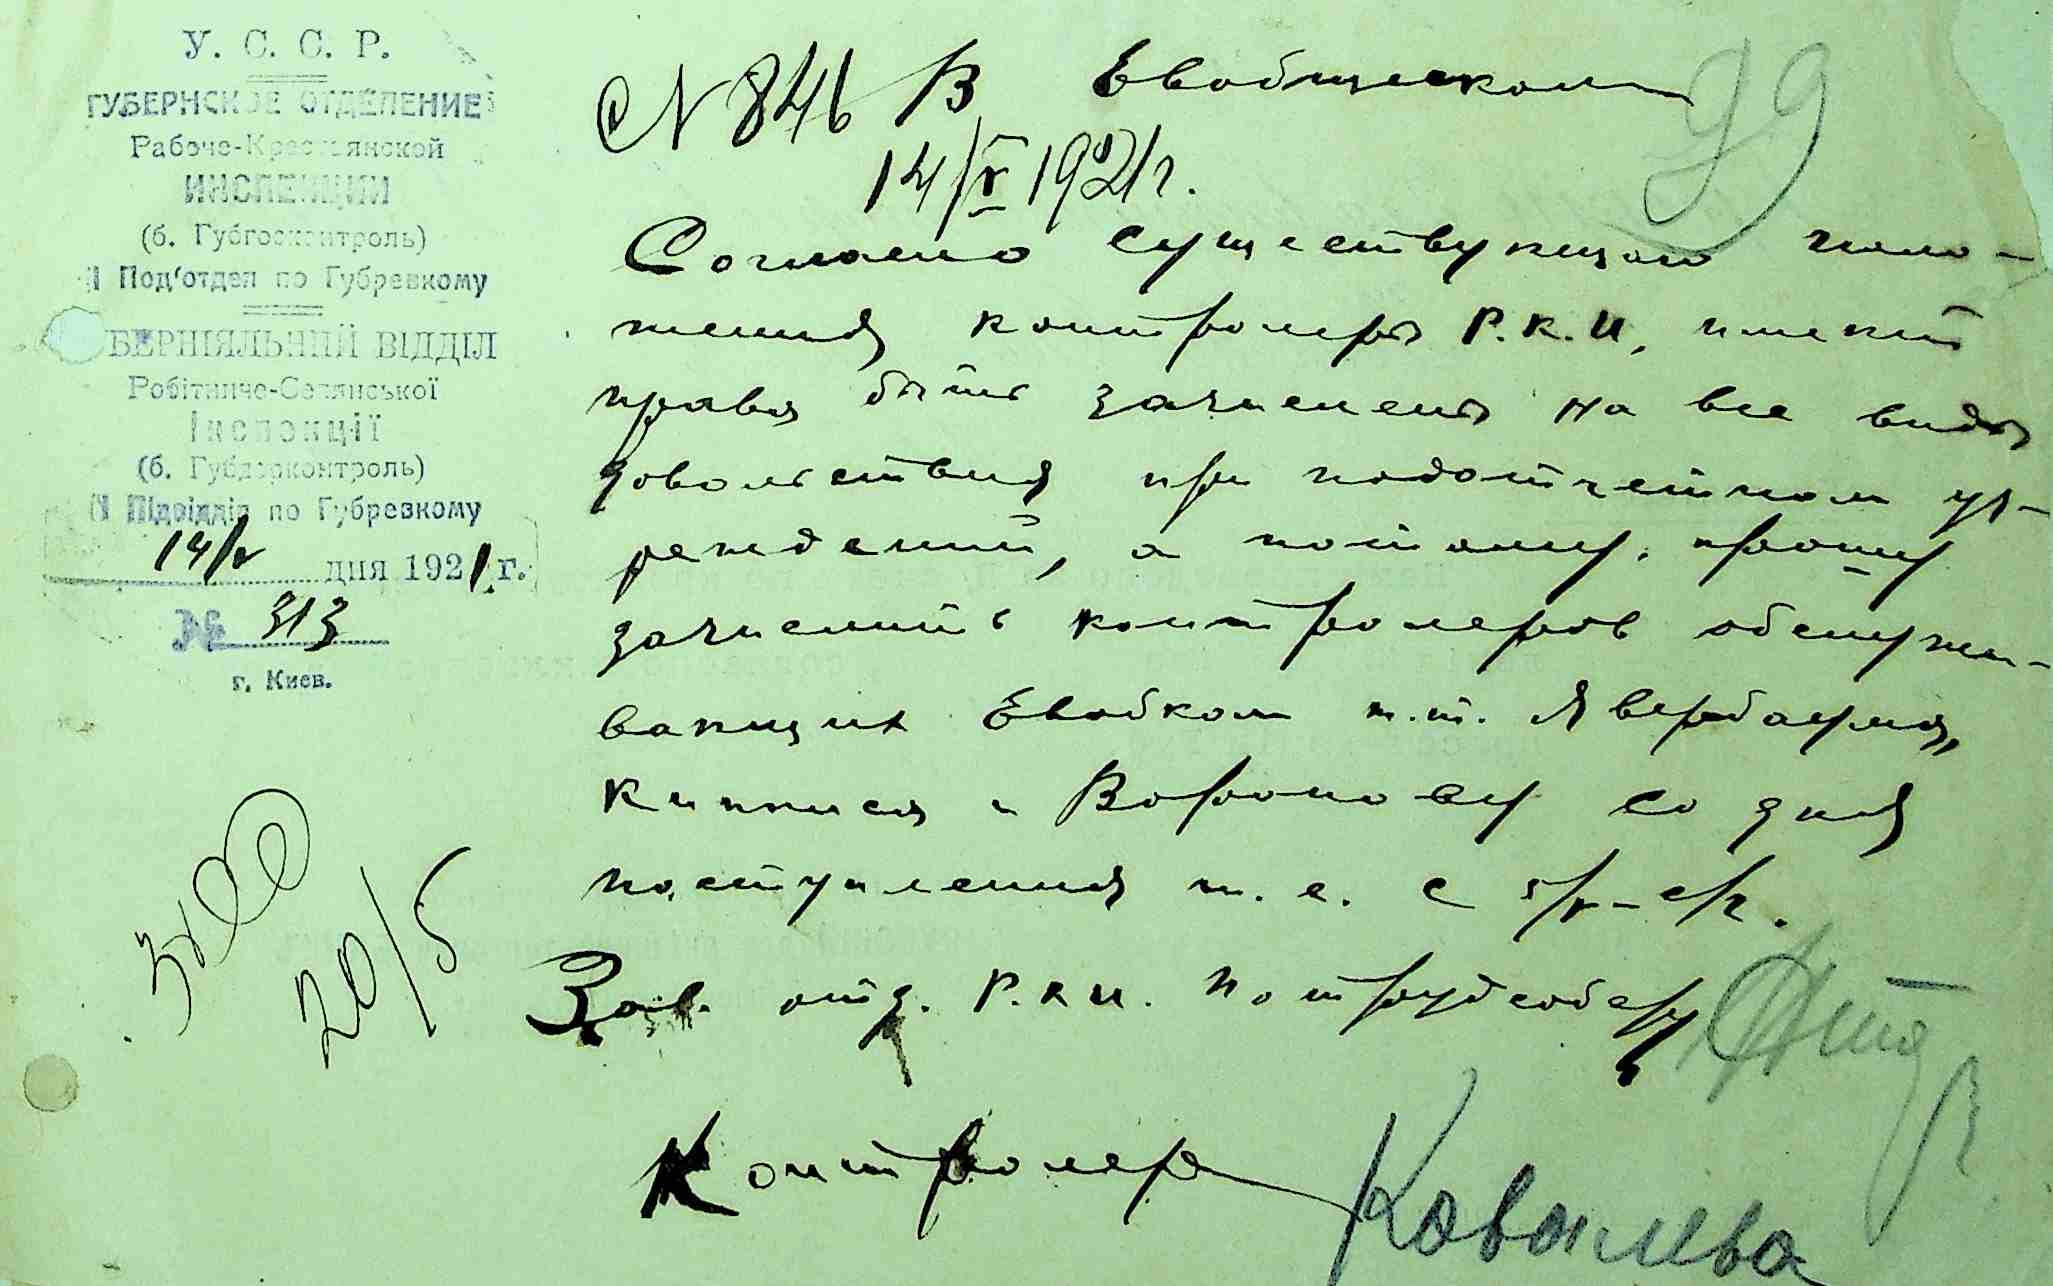 У. С. С. Р.
ГУБЕРНСКОЕ ОТДЕЛЕНИЕ
Рабоче-Крестьянской
ИНСПЕКЦИИ
(б. Губгосконтроль)
Под'отдел по Губревкому
БЕРНІЯЛЬНИЙ ВІДДІЛ
Робітниче-Селянської
Інспекції
(б. Губдерконтроль)
Підвідділ по Губревкому
14/V дня 1921 г.
№ 313
г. Киев.
20/5
№ 846 В Евобщеском
99
14/V 1921 г.
Согласно существующаго поло-
жения контролеры Р.К.И, имеют
право быть зачислены на все виды
довольствия при подотчетном уч-
реждении, а потому прошу
зачислить контролеров обслужи-
вающих Евобком т.т. Явербаума,
Кипниса и Воронову со дня
поступления т. е. с 5/V - с/г.
Зав. отд. Р.К.И. по трудсобесу
Контролер Ковалева